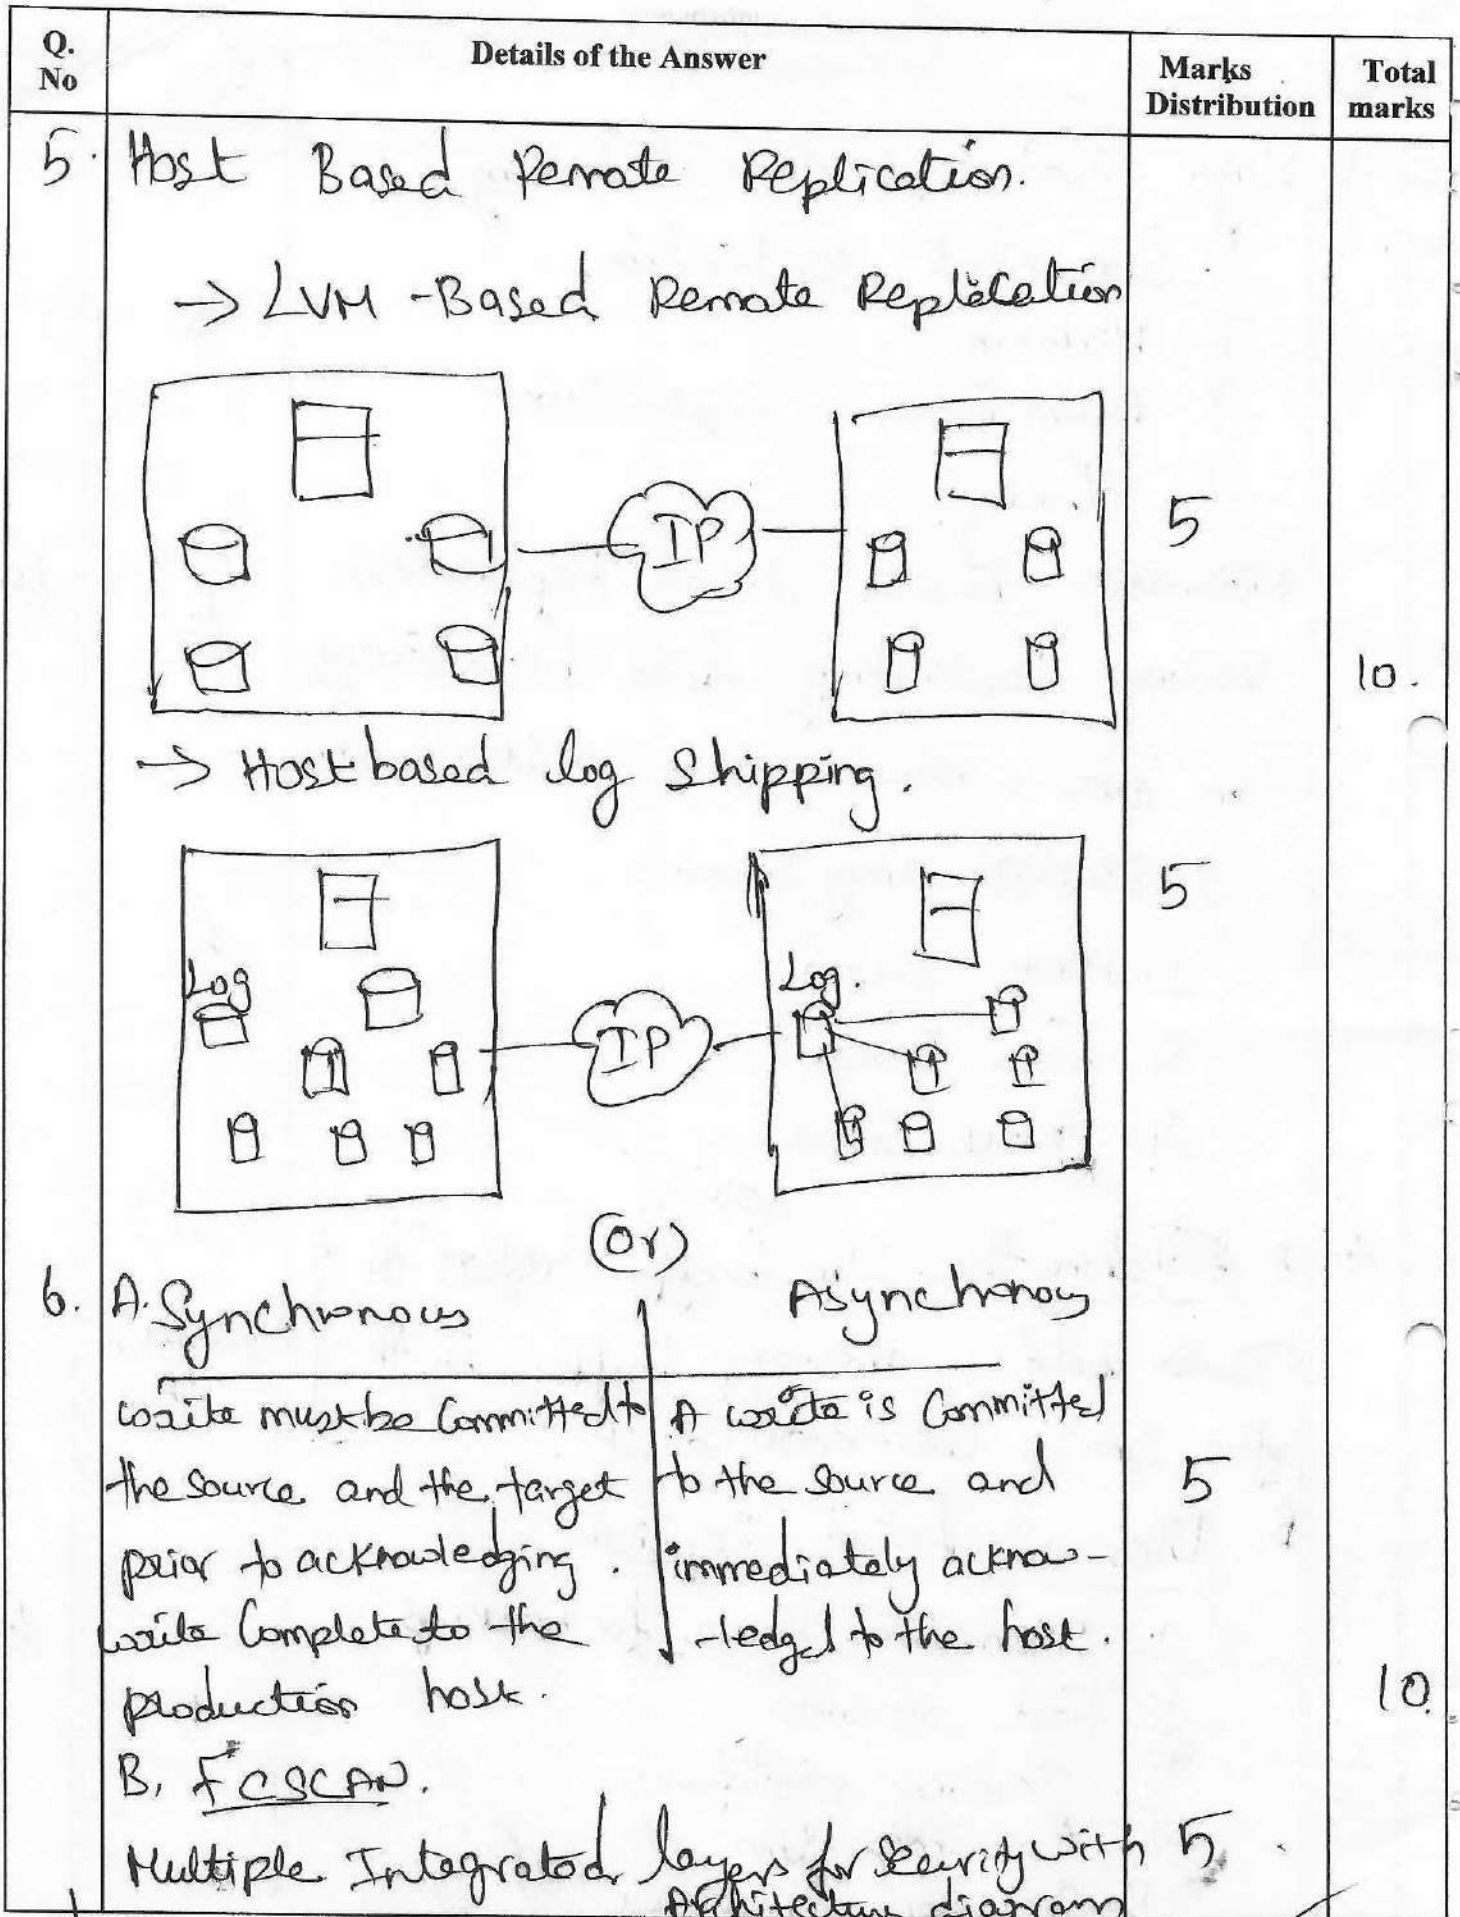 Q. No
Details of the Answer
Marks Distribution
Total marks
5. Host Based Remote Replication.
→ LVM - Based Remote Replication
IP
5
10.
→ Host based log Shipping.
5
Log
Log.
IP
(Or)
6. A. Synchronous
Asynchronous
write must be Committed to
the source and the target
prior to acknowledging.
write Complete to the
production host.
A write is Committed
to the source and
immediately acknow-
-ledged to the host.
5
10.
B. FCSCAN.
Multiple Integrated layers for Security with 5
Architecture diagram